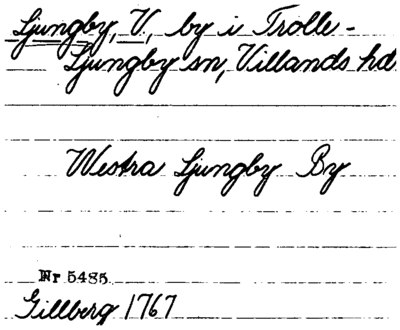 Ljungby, V., by i Trolle-
Ljungby sn, Villands hd
Westra Ljungby By
Nr 5485
Gillberg 1767